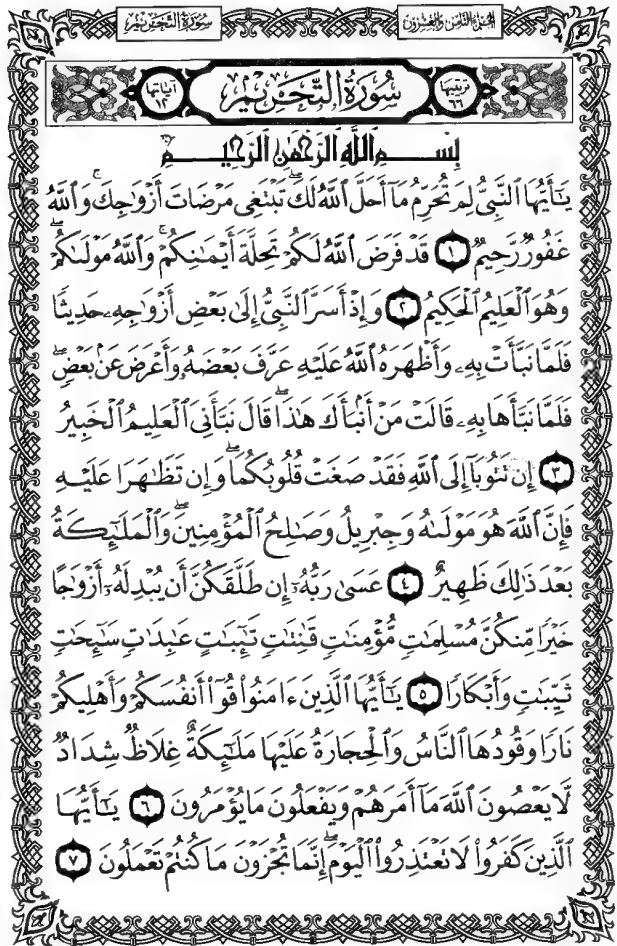 سُورَةُ التَّحْرِيمِ
الجزء الثامن والعشرون
ترتيبها ٦٦
سُورَةُ التَّحْرِيمِ
آياتها ١٢
بِسْمِ ٱللَّهِ ٱلرَّحْمَٰنِ ٱلرَّحِيمِ
يَٰٓأَيُّهَا ٱلنَّبِىُّ لِمَ تُحَرِّمُ مَآ أَحَلَّ ٱللَّهُ لَكَۖ تَبْتَغِى مَرْضَاتَ أَزْوَٰجِكَۚ وَٱللَّهُ
غَفُورٌ رَّحِيمٌ ١ قَدْ فَرَضَ ٱللَّهُ لَكُمْ تَحِلَّةَ أَيْمَٰنِكُمْۚ وَٱللَّهُ مَوْلَىٰكُمْۖ
وَهُوَ ٱلْعَلِيمُ ٱلْحَكِيمُ ٢ وَإِذْ أَسَرَّ ٱلنَّبِىُّ إِلَىٰ بَعْضِ أَزْوَٰجِهِۦ حَدِيثًا
فَلَمَّا نَبَّأَتْ بِهِۦ وَأَظْهَرَهُ ٱللَّهُ عَلَيْهِ عَرَّفَ بَعْضَهُۥ وَأَعْرَضَ عَنۢ بَعْضٍۖ
فَلَمَّا نَبَّأَهَا بِهِۦ قَالَتْ مَنْ أَنۢبَأَكَ هَٰذَاۖ قَالَ نَبَّأَنِىَ ٱلْعَلِيمُ ٱلْخَبِيرُ
٣ إِن تَتُوبَآ إِلَى ٱللَّهِ فَقَدْ صَغَتْ قُلُوبُكُمَاۖ وَإِن تَظَٰهَرَا عَلَيْهِ
فَإِنَّ ٱللَّهَ هُوَ مَوْلَىٰهُ وَجِبْرِيلُ وَصَٰلِحُ ٱلْمُؤْمِنِينَۖ وَٱلْمَلَٰٓئِكَةُ
بَعْدَ ذَٰلِكَ ظَهِيرٌ ٤ عَسَىٰ رَبُّهُۥٓ إِن طَلَّقَكُنَّ أَن يُبْدِلَهُۥٓ أَزْوَٰجًا
خَيْرًا مِّنكُنَّ مُسْلِمَٰتٍ مُّؤْمِنَٰتٍ قَٰنِتَٰتٍ تَٰٓئِبَٰتٍ عَٰبِدَٰتٍ سَٰٓئِحَٰتٍ
ثَيِّبَٰتٍ وَأَبْكَارًا ٥ يَٰٓأَيُّهَا ٱلَّذِينَ ءَامَنُوا۟ قُوٓا۟ أَنفُسَكُمْ وَأَهْلِيكُمْ
نَارًا وَقُودُهَا ٱلنَّاسُ وَٱلْحِجَارَةُ عَلَيْهَا مَلَٰٓئِكَةٌ غِلَاظٌ شِدَادٌ
لَّا يَعْصُونَ ٱللَّهَ مَآ أَمَرَهُمْ وَيَفْعَلُونَ مَا يُؤْمَرُونَ ٦ يَٰٓأَيُّهَا
ٱلَّذِينَ كَفَرُوا۟ لَا تَعْتَذِرُوا۟ ٱلْيَوْمَۖ إِنَّمَا تُجْزَوْنَ مَا كُنتُمْ تَعْمَلُونَ ٧